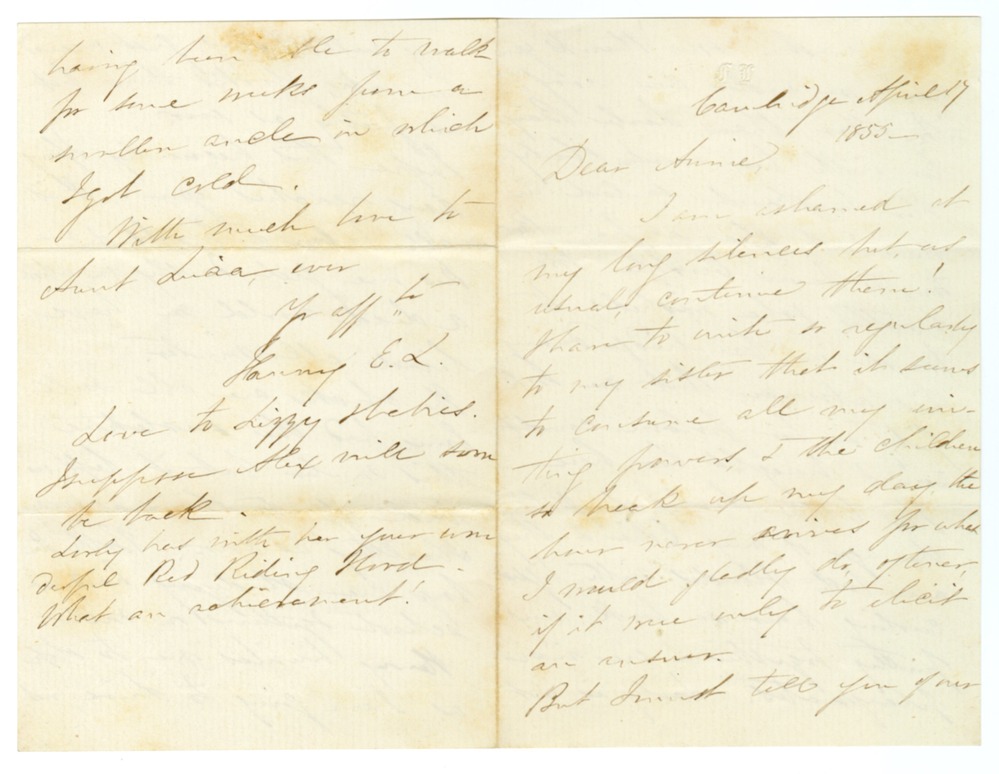 Cambridge April 17
1855—
Dear Annie,
I am ashamed at
my long silences but, as
usual, continue them!
I have to write so regularly
to my sister that it seems
to consume all my wri-
ting powers, & the children
so break up my day the
hour never arrives for what
I would gladly do, oftener,
if it were only to elicit
an answer.
But I must tell you of our
having been able to walk
for some weeks from a
swollen ancle in which
I got cold.
With much love to
Aunt Lucia, ever
Yr aff te
Fanny E. L.
Love to Lizzy & babies.
I suppose Alex will soon
be back.
has with her your won
derful Red Riding Hood.
What an achievement!